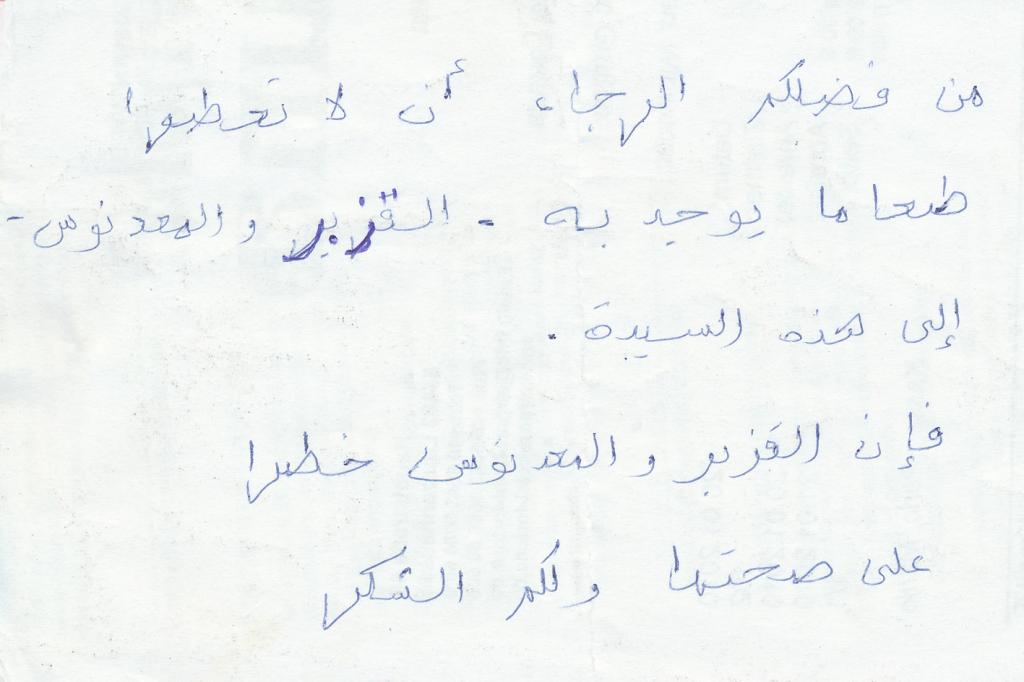 من فضلكم الرجاء أن لا تعطوا
طعاما يوجد به - القزبر والمعدنوس -
إلى هذه السيدة .
فإن القزبر والمعدنوس خطرا
على صحتها ولكم الشكر